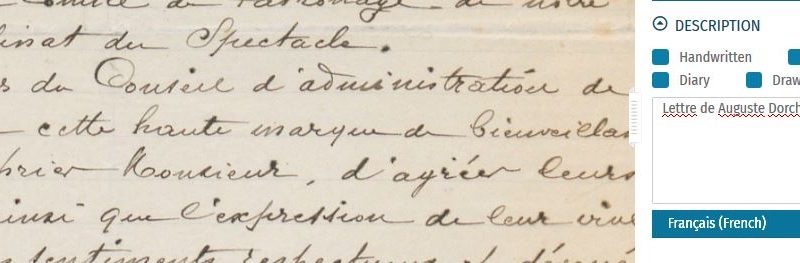 Comité de Patronage de notre
du Spectacle.
du Conseil d'administration de
cette haute marque de bienveillan
prier Monsieur, d'agréer leurs
ainsi que l'expression de leur vive
sentiments respectueux et dévoués
DESCRIPTION
Handwritten
Diary Draw
Lettre de Auguste Dorch
Français (French)